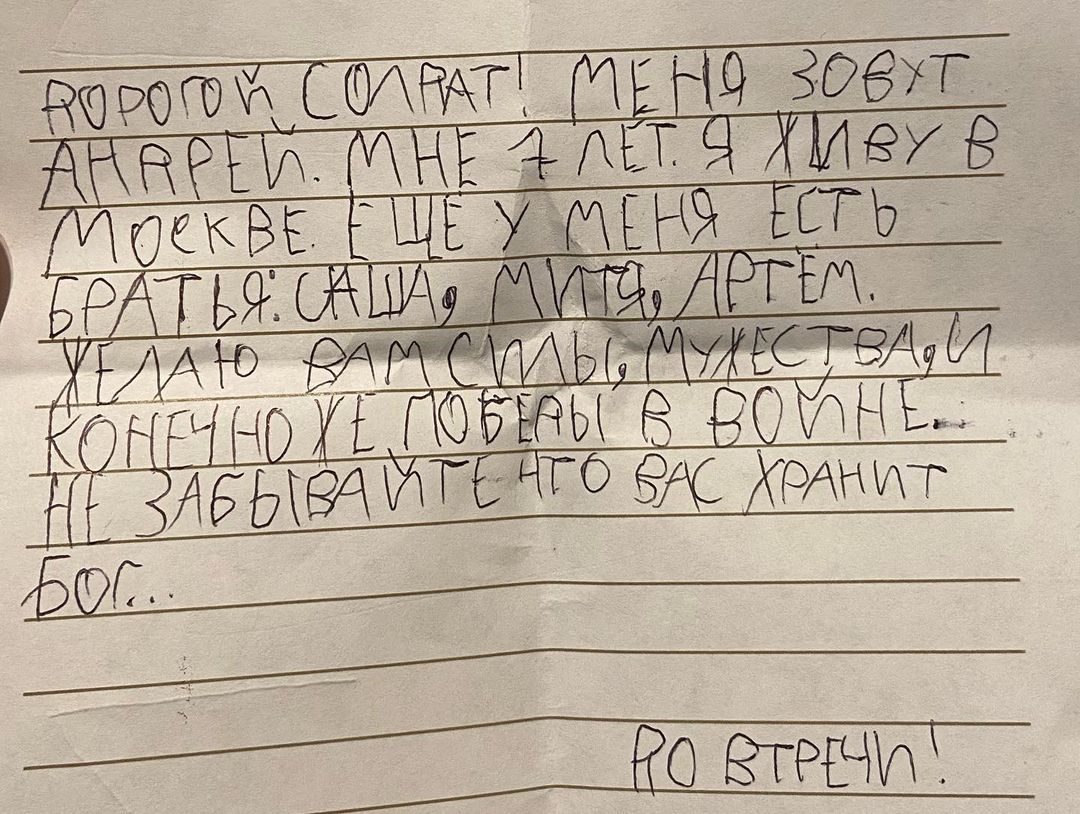 ДОРОГОЙ СОЛДАТ! МЕНЯ ЗОВУТ
АНДРЕЙ. МНЕ 7 ЛЕТ. Я ЖИВУ В
МОСКВЕ. ЕЩЕ У МЕНЯ ЕСТЬ
БРАТЬЯ: САША, МИТЯ, АРТЁМ.
ЖЕЛАЮ ВАМ СИЛЫ, МУЖЕСТВА, И
КОНЕЧНО ЖЕ ПОБЕДЫ В ВОЙНЕ.
НЕ ЗАБЫВАЙТЕ ЧТО ВАС ХРАНИТ
БОГ...
ДО ВТРЕЧИ!